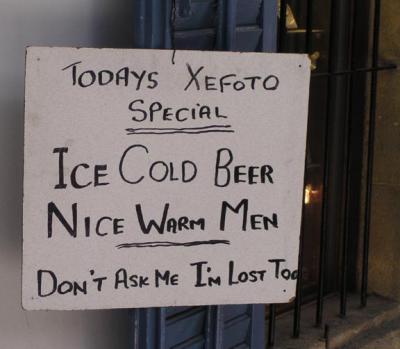 TODAYS XEFOTO
SPECIAL
ICE COLD BEER
NICE WARM MEN
DON'T ASK ME I'M LOST TOO